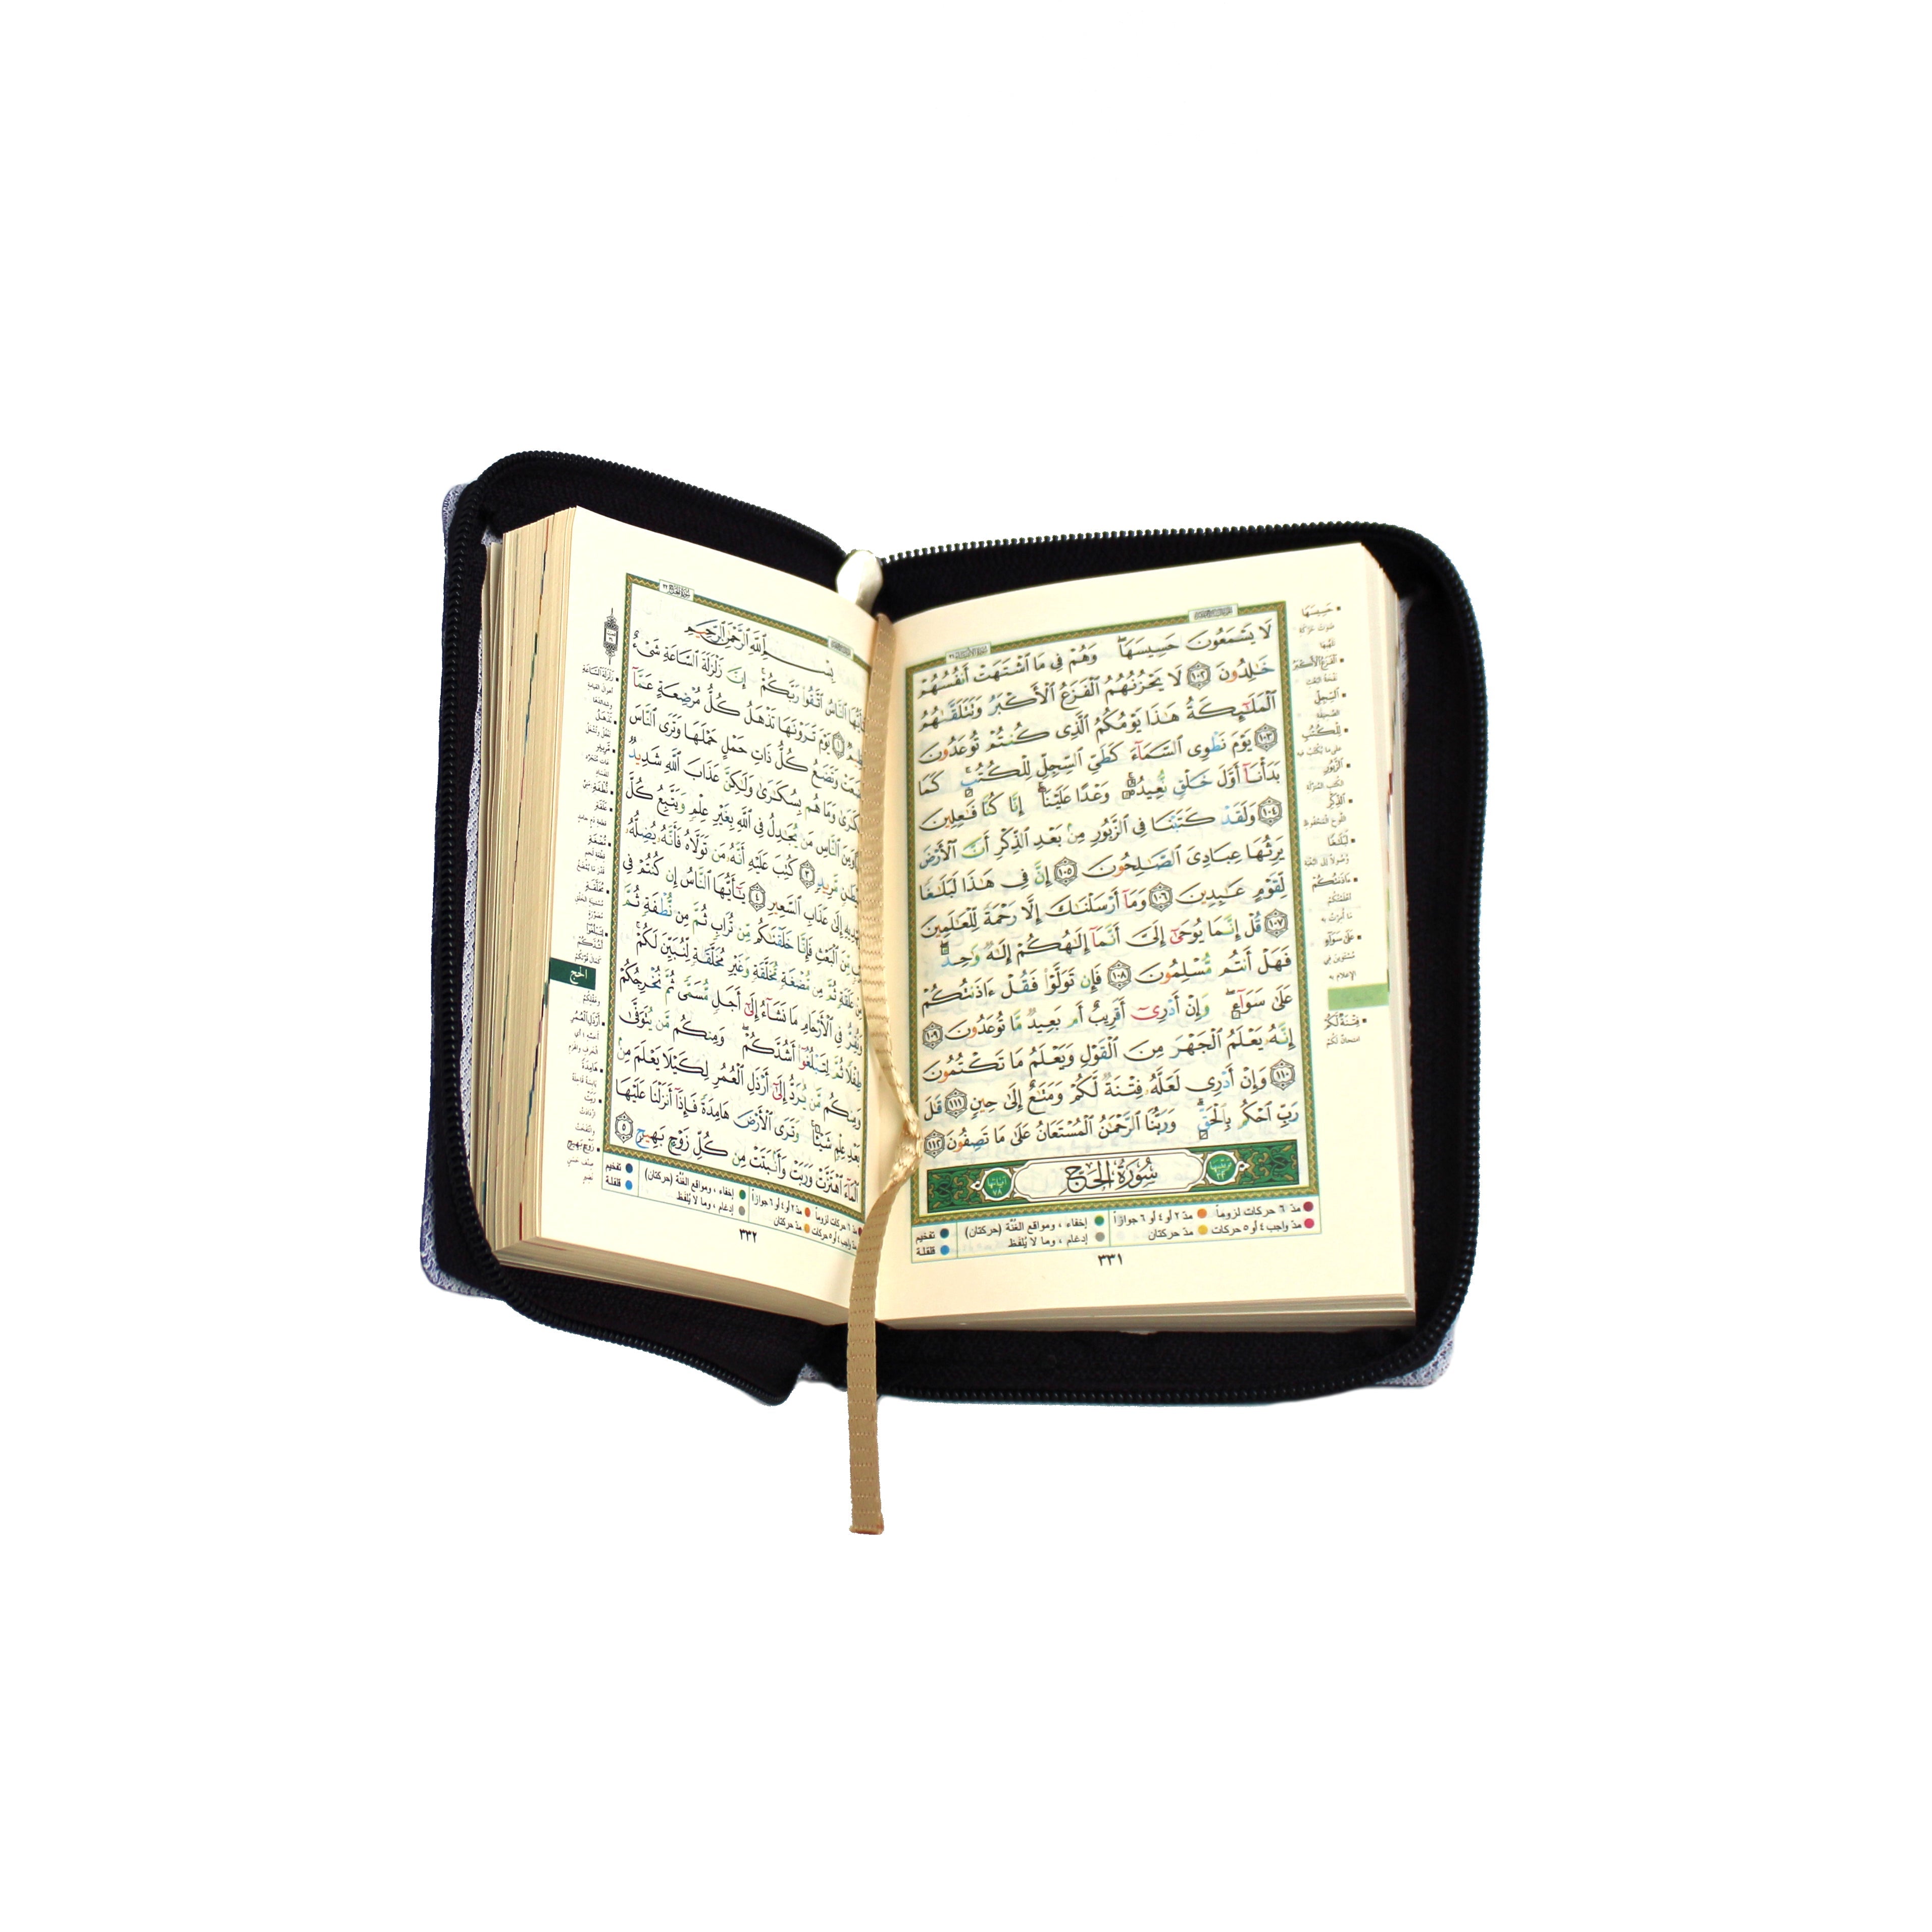 لَا يَسْمَعُونَ حَسِيسَهَا ۖ وَهُمْ فِي مَا ٱشْتَهَتْ أَنفُسُهُمْ
خَٰلِدُونَ ١٠٢ لَا يَحْزُنُهُمُ ٱلْفَزَعُ ٱلْأَكْبَرُ وَتَتَلَقَّىٰهُمُ
ٱلْمَلَٰٓئِكَةُ هَٰذَا يَوْمُكُمُ ٱلَّذِي كُنتُمْ تُوعَدُونَ
١٠٣ يَوْمَ نَطْوِي ٱلسَّمَآءَ كَطَيِّ ٱلسِّجِلِّ لِلْكُتُبِ ۚ كَمَا
بَدَأْنَآ أَوَّلَ خَلْقٍ نُّعِيدُهُۥ ۚ وَعْدًا عَلَيْنَآ ۚ إِنَّا كُنَّا فَٰعِلِينَ
١٠٤ وَلَقَدْ كَتَبْنَا فِي ٱلزَّبُورِ مِنۢ بَعْدِ ٱلذِّكْرِ أَنَّ ٱلْأَرْضَ
يَرِثُهَا عِبَادِيَ ٱلصَّٰلِحُونَ ١٠٥ إِنَّ فِي هَٰذَا لَبَلَٰغًا
لِّقَوْمٍ عَٰبِدِينَ ١٠٦ وَمَآ أَرْسَلْنَٰكَ إِلَّا رَحْمَةً لِّلْعَٰلَمِينَ
١٠٧ قُلْ إِنَّمَا يُوحَىٰٓ إِلَيَّ أَنَّمَآ إِلَٰهُكُمْ إِلَٰهٌ وَٰحِدٌ ۖ
فَهَلْ أَنتُم مُّسْلِمُونَ ١٠٨ فَإِن تَوَلَّوْا۟ فَقُلْ ءَاذَنتُكُمْ
عَلَىٰ سَوَآءٍ ۖ وَإِنْ أَدْرِيٓ أَقَرِيبٌ أَم بَعِيدٌ مَّا تُوعَدُونَ ١٠٩
إِنَّهُۥ يَعْلَمُ ٱلْجَهْرَ مِنَ ٱلْقَوْلِ وَيَعْلَمُ مَا تَكْتُمُونَ
١١٠ وَإِنْ أَدْرِي لَعَلَّهُۥ فِتْنَةٌ لَّكُمْ وَمَتَٰعٌ إِلَىٰ حِينٍ ١١١ قَٰلَ
رَبِّ ٱحْكُم بِٱلْحَقِّ ۗ وَرَبُّنَا ٱلرَّحْمَٰنُ ٱلْمُسْتَعَانُ عَلَىٰ مَا تَصِفُونَ ١١٢
سُورَةُ الحَجِّ
مدّ ٦ حركات لزوماً مدّ ٢ أو ٤ أو ٦ جوازاً إخفاء ، ومواقع الغنّة (حركتان) تفخيم
مدّ واجب ٤ أو ٥ حركات مدّ حركتان إدغام ، وما لا يُلفَظ قلقلة
٣٣١
حَسِيسَهَا
ٱلْفَزَعُ ٱلْأَكْبَرُ
ٱلسِّجِلِّ
لِلْكُتُبِ
ٱلزَّبُورِ
ٱلذِّكْرِ
لَبَلَٰغًا
ءَاذَنتُكُمْ
عَلَىٰ سَوَآءٍ
فِتْنَةٌ لَّكُمْ
بِسْمِ ٱللَّهِ ٱلرَّحْمَٰنِ ٱلرَّحِيمِ
ٱلنَّاسُ ٱتَّقُوا۟ رَبَّكُمْ ۚ إِنَّ زَلْزَلَةَ ٱلسَّاعَةِ شَيْءٌ
١ يَوْمَ تَرَوْنَهَا تَذْهَلُ كُلُّ مُرْضِعَةٍ عَمَّآ
وَتَضَعُ كُلُّ ذَاتِ حَمْلٍ حَمْلَهَا وَتَرَى ٱلنَّاسَ
وَمَا هُم بِسُكَٰرَىٰ وَلَٰكِنَّ عَذَابَ ٱللَّهِ شَدِيدٌ
وَمِنَ ٱلنَّاسِ مَن يُجَٰدِلُ فِي ٱللَّهِ بِغَيْرِ عِلْمٍ وَيَتَّبِعُ كُلَّ
مَّرِيدٍ ٣ كُتِبَ عَلَيْهِ أَنَّهُۥ مَن تَوَلَّاهُ فَأَنَّهُۥ يُضِلُّهُۥ
إِلَىٰ عَذَابِ ٱلسَّعِيرِ ٤ يَٰٓأَيُّهَا ٱلنَّاسُ إِن كُنتُمْ فِي
مِّنَ ٱلْبَعْثِ فَإِنَّا خَلَقْنَٰكُم مِّن تُرَابٍ ثُمَّ مِن نُّطْفَةٍ ثُمَّ
عَلَقَةٍ ثُمَّ مِن مُّضْغَةٍ مُّخَلَّقَةٍ وَغَيْرِ مُخَلَّقَةٍ لِّنُبَيِّنَ لَكُمْ ۚ
وَنُقِرُّ فِي ٱلْأَرْحَامِ مَا نَشَآءُ إِلَىٰٓ أَجَلٍ مُّسَمًّى ثُمَّ نُخْرِجُكُمْ
طِفْلًا ثُمَّ لِتَبْلُغُوٓا۟ أَشُدَّكُمْ ۖ وَمِنكُم مَّن يُتَوَفَّىٰ
وَمِنكُم مَّن يُرَدُّ إِلَىٰٓ أَرْذَلِ ٱلْعُمُرِ لِكَيْلَا يَعْلَمَ مِنۢ
بَعْدِ عِلْمٍ شَيْـًٔا ۚ وَتَرَى ٱلْأَرْضَ هَامِدَةً فَإِذَآ أَنزَلْنَا عَلَيْهَا
ٱلْمَآءَ ٱهْتَزَّتْ وَرَبَتْ وَأَنۢبَتَتْ مِن كُلِّ زَوْجٍۭ بَهِيجٍ ٥
مدّ ٦ حركات لزوماً مدّ ٢ أو ٤ أو ٦ جوازاً إخفاء ، ومواقع الغنّة (حركتان) تفخيم
مدّ واجب ٤ أو ٥ حركات مدّ حركتان إدغام ، وما لا يُلفَظ قلقلة
٣٣٢
الحج